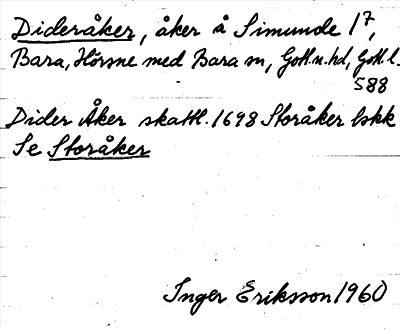 Dideråker, åker å Simunde 1⁷,
Bara, Hörsne med Bara sn, Gotl.n.hd, Gotl.l.
588
Dider Åker skattl. 1698 Storåker lskk
Se Storåker
Inger Eriksson 1960